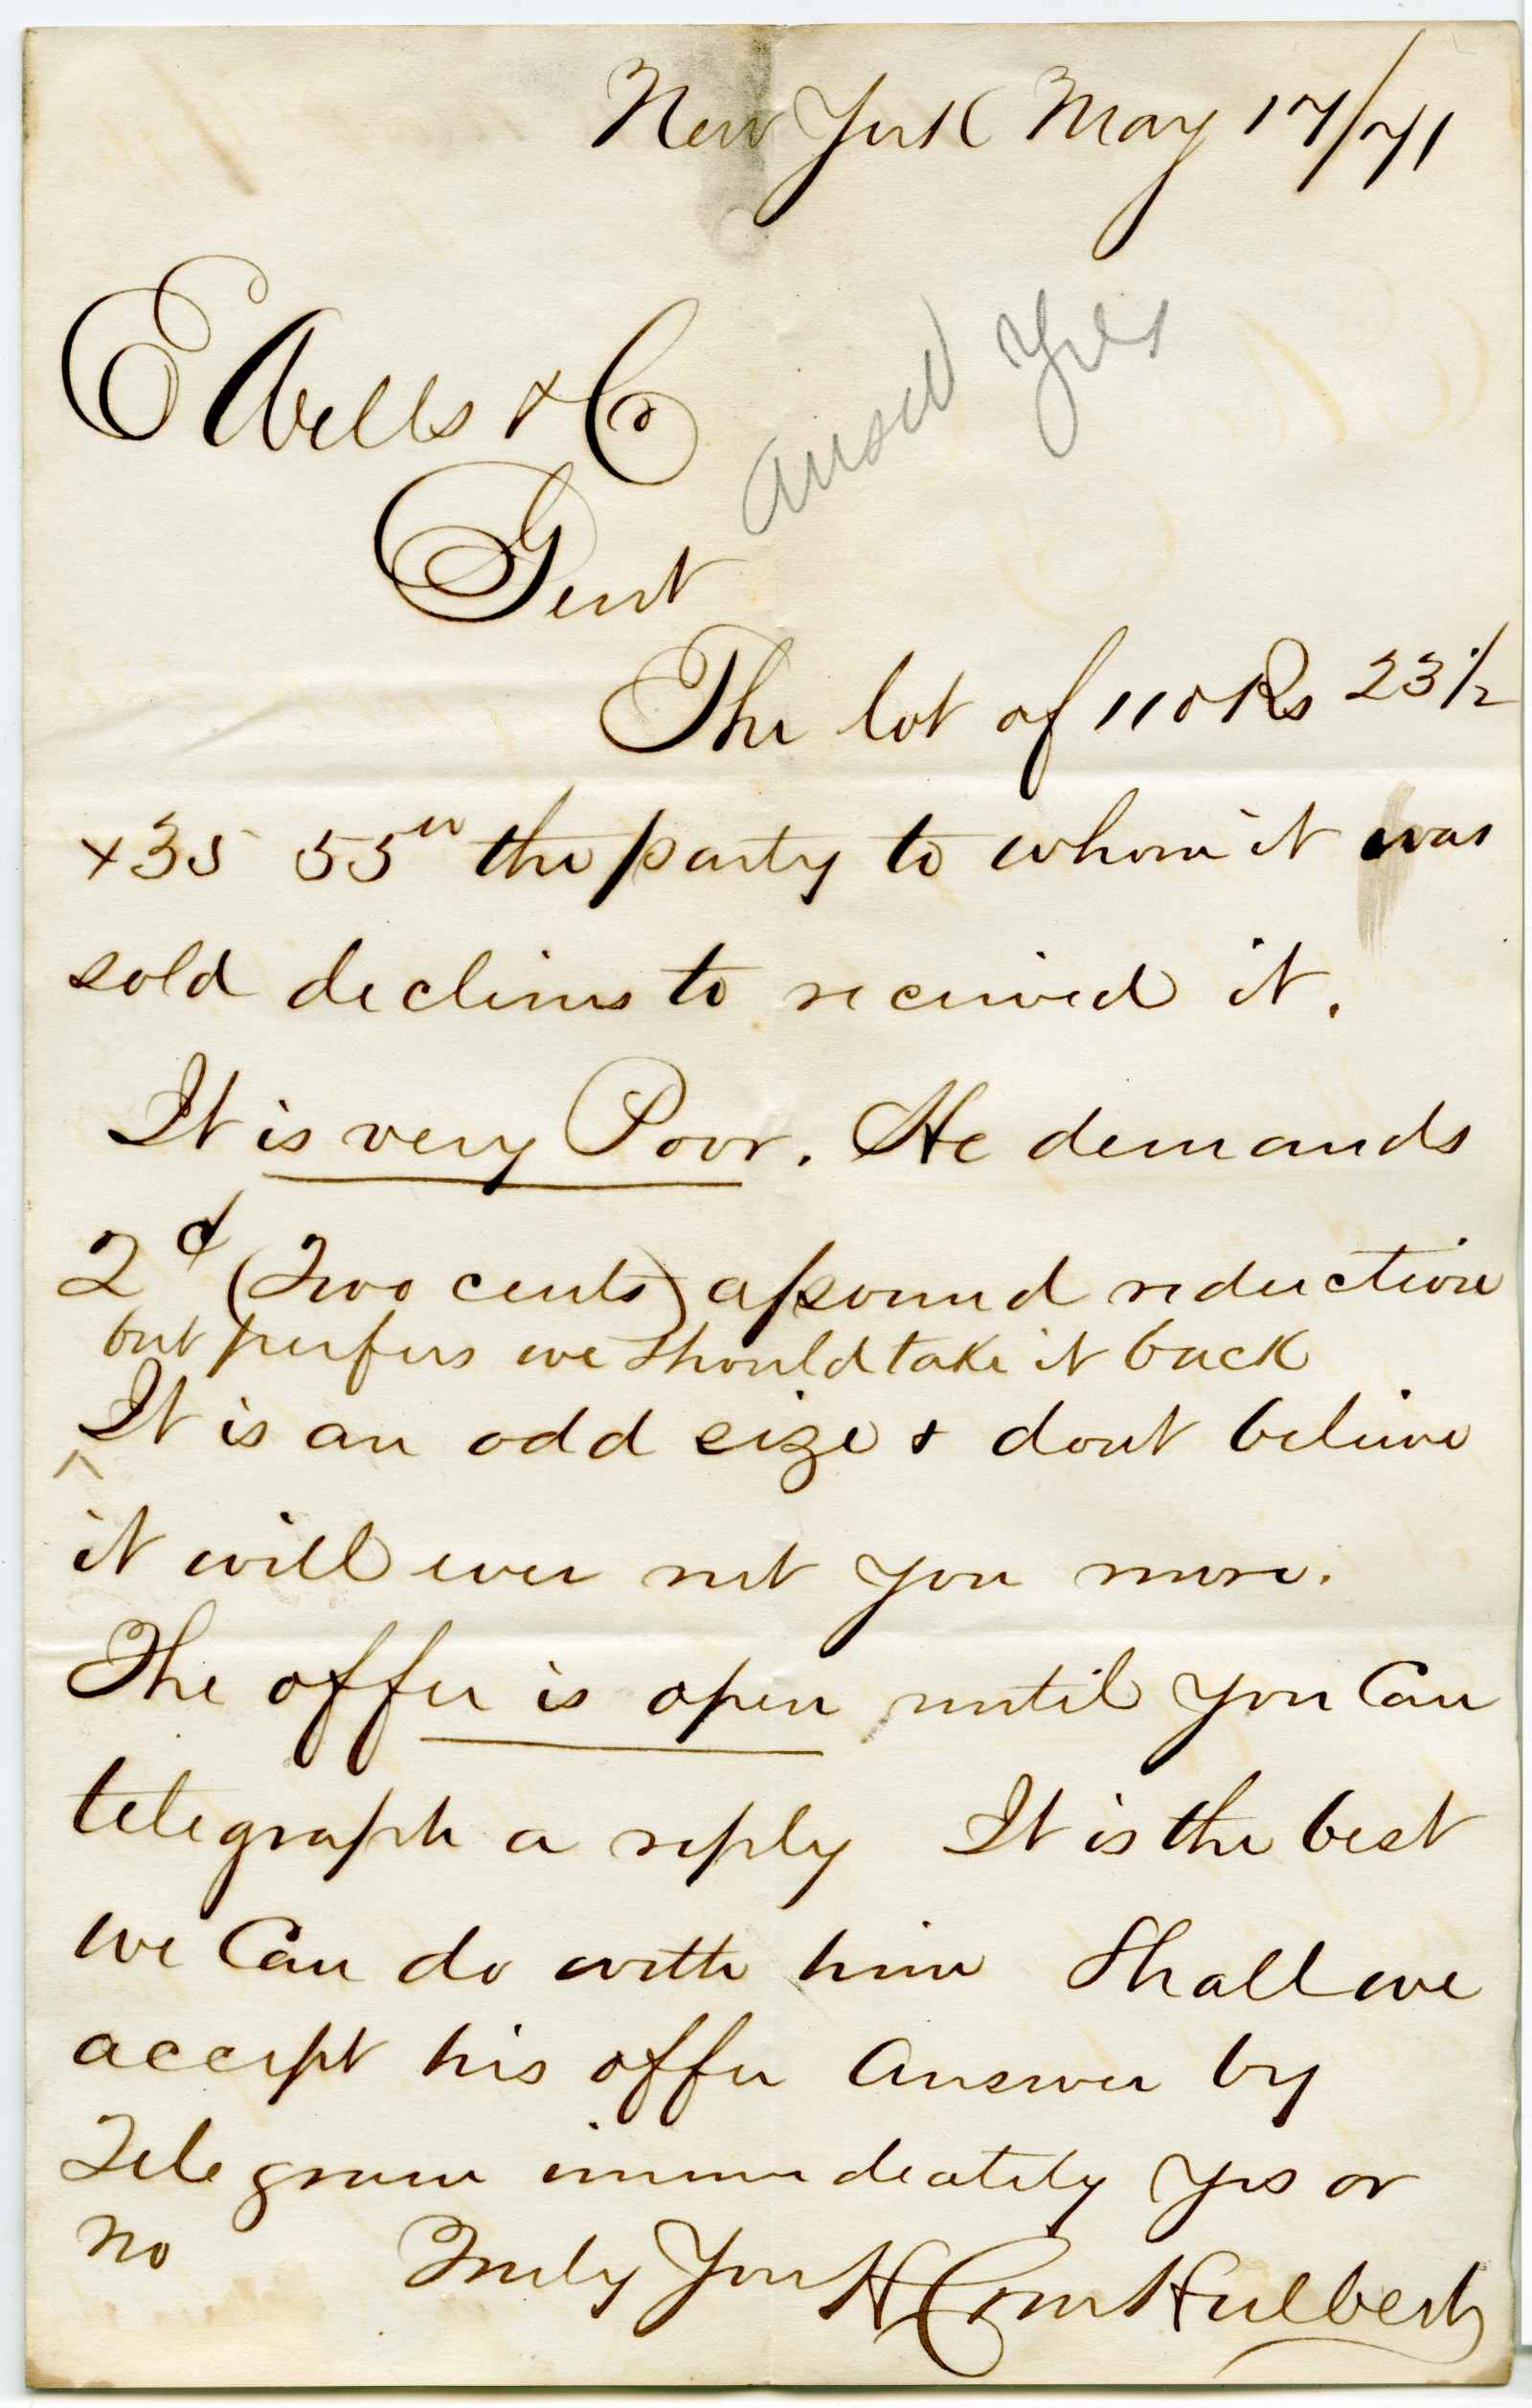 New York May 17/71
E Wells & Co
Ansd Yes
Gent
The lot of 110 Rs 23 1/2
x 35 55" the party to whom it was
sold declines to recieved it.
It is very Poor. He demands
2¢ (Two cents) a pound reduction
but perfers we should take it back
It is an odd size & dont believe
it will ever net you more.
The offer is open until you Can
telegraph a reply It is the best
we Can do with him Shall we
accept his offer Answer by
Telegram immediately Yes or
No Truly Your H Hulbert